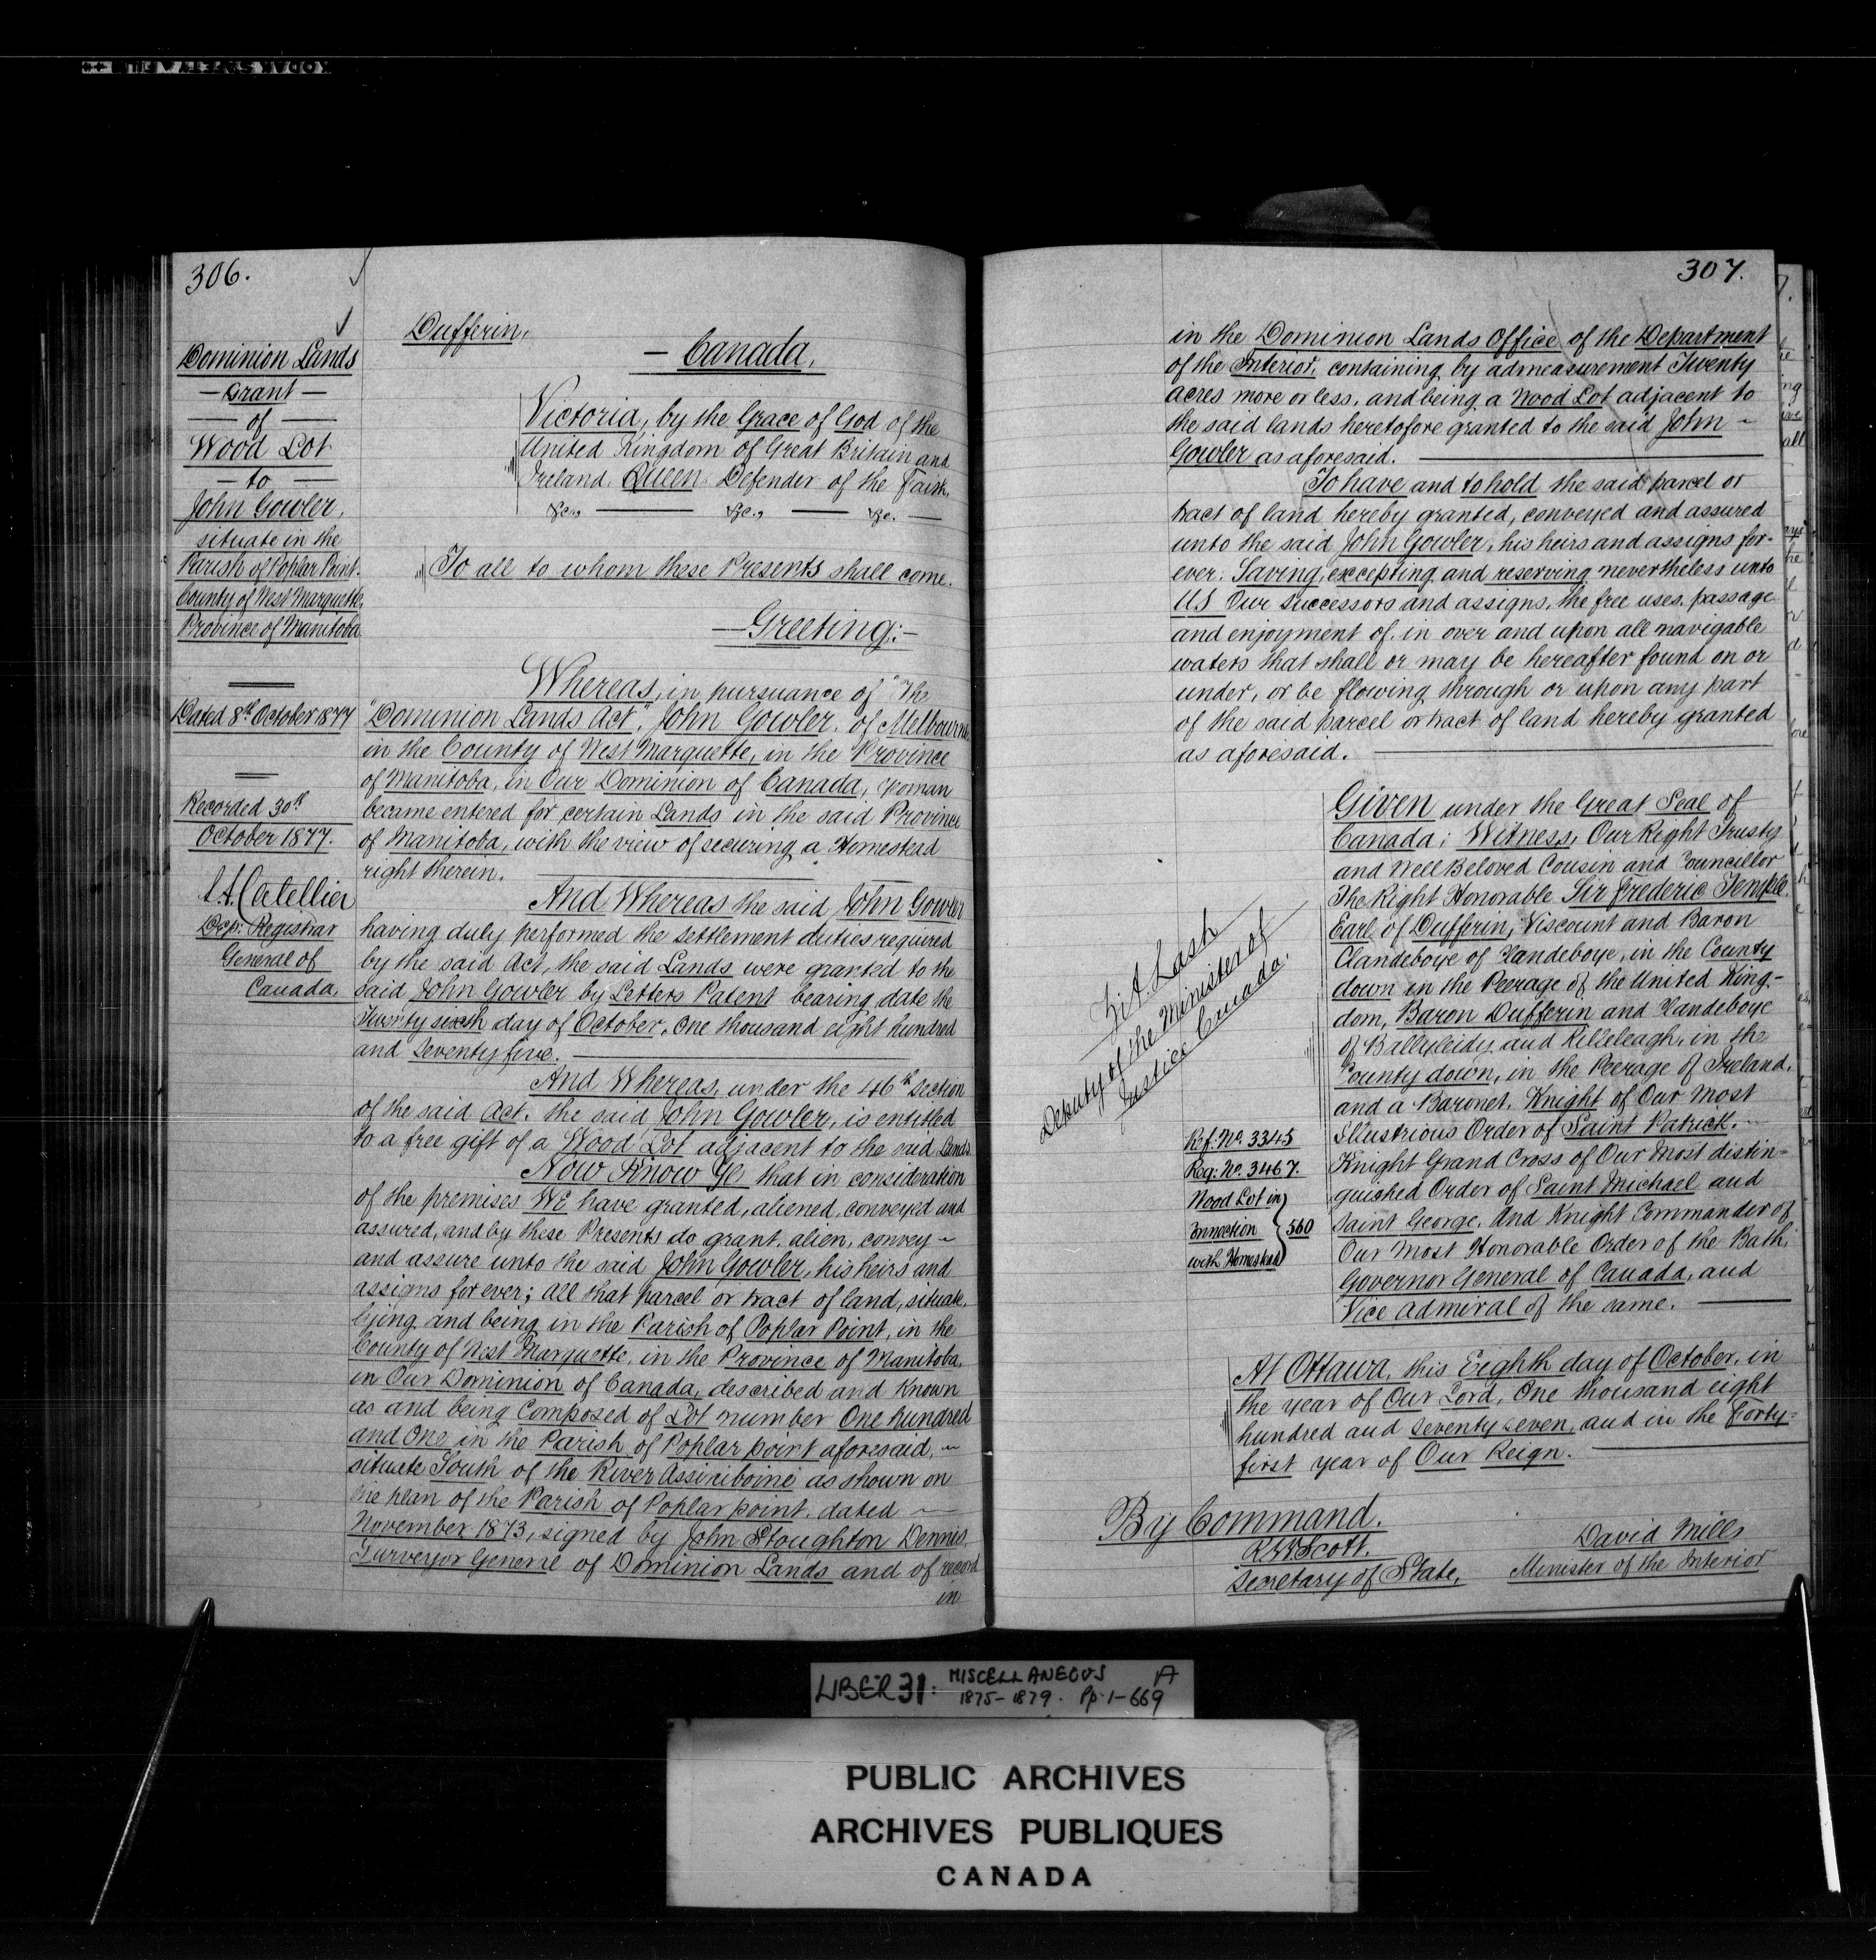 306.
Dominion Lands
— Grant —
— of —
Wood Lot
— to —
John Gowler,
situate in the
Parish of Poplar Point.
County of West Marquette,
Province of Manitoba
Dated 8th October 1877
Recorded 30th
October 1877.
L. A. Catellier
Dep: Registrar
General of
Canada,
Dufferin,
— Canada,
Victoria, by the Grace of God of the
United Kingdom of Great Britain and
Ireland, Queen, Defender of the Faith,
&c., — &c., — &c. —
To all to whom these Presents shall come.
— Greeting:—
Whereas, in pursuance of "The
"Dominion Lands Act", John Gowler, of Melbourne
in the County of West Marquette, in the Province
of Manitoba, in Our Dominion of Canada, Yoman
became entered for certain Lands in the said Province
of Manitoba, with the view of securing a Homestead
right therein.
And Whereas the said John Gowler
having duly performed the settlement duties required
by the said Act, the said Lands were granted to the
said John Gowler by Letters Patent bearing date the
Twenty sixth day of October, One thousand eight hundred
and seventy five.
And Whereas, under the 46th section
of the said Act, the said John Gowler, is entitled
to a free gift of a Wood Lot adjacent to the said Lands
Now Know Ye that in consideration
of the premises We have granted, aliened, conveyed and
assured, and by these Presents do grant, alien, convey
and assure unto the said John Gowler, his heirs and
assigns for ever; all that parcel or tract of land, situate,
lying and being in the Parish of Poplar Point, in the
County of West Marquette, in the Province of Manitoba,
in Our Dominion of Canada, described and known
as and being Composed of Lot number One hundred
and One in the Parish of Poplar point aforesaid,
situate South of the River Assiniboine as shown on
the plan of the Parish of Poplar point, dated
November 1873, signed by John Stoughton Dennis,
Surveyor General of Dominion Lands and of record
in
307.
in the Dominion Lands Office of the Department
of the Interior, containing by admeasurement Twenty
acres more or less, and being a Wood Lot adjacent to
the said lands heretofore granted to the said John
Gowler as aforesaid.
To have and to hold the said parcel or
tract of land hereby granted, conveyed and assured
unto the said John Gowler, his heirs and assigns for-
ever. Saving, excepting and reserving nevertheless unto
US Our successors and assigns, the free uses, passage
and enjoyment of, in over and upon all navigable
waters that shall or may be hereafter found on or
under, or be flowing through or upon any part
of the said parcel or tract of land hereby granted
as aforesaid.
Z. A. Lash
Deputy of the Minister of
Justice Canada.
Given under the Great Seal of
Canada; Witness, Our Right Trusty
and Well Beloved Cousin and Councillor
The Right Honorable Sir Frederic Temple
Earl of Dufferin, Viscount and Baron
Clandeboye of Clandeboye, in the County
down in the Peerage of the United King-
dom, Baron Dufferin and Clandeboye
of Ballyleidy and Killeleagh, in the
County down, in the Peerage of Ireland,
and a Baronet, Knight of Our Most
Illustrious Order of Saint Patrick,
Knight Grand Cross of Our Most distin-
guished Order of Saint Michael and
Saint George, and Knight Commander of
Our Most Honorable Order of the Bath;
Governor General of Canada, and
Vice Admiral of the same.
Ref: No. 3345
Reg: No. 3467.
Wood Lot in
Connection } 560
with Homestead
At Ottawa, this Eighth day of October, in
the year of Our Lord, One thousand eight
hundred and seventy seven, and in the Forty-
first year of Our Reign.
By Command.
R W Scott.
Secretary of State,
David Mills
Minister of the Interior
LIBER 31: MISCELLANEOUS A
1875-1879. Pp. 1-669
PUBLIC ARCHIVES
ARCHIVES PUBLIQUES
CANADA